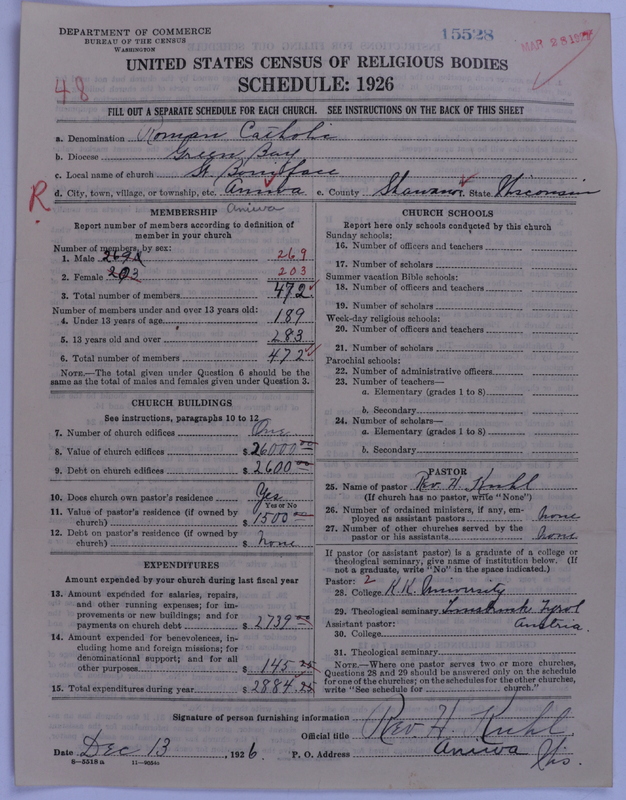 DEPARTMENT OF COMMERCE
BUREAU OF THE CENSUS
WASHINGTON
15528
MAR 28 1927
UNITED STATES CENSUS OF RELIGIOUS BODIES
48
SCHEDULE: 1926
FILL OUT A SEPARATE SCHEDULE FOR EACH CHURCH. SEE INSTRUCTIONS ON THE BACK OF THIS SHEET
a. Denomination Roman Catholic
b. Diocese Green Bay
c. Local name of church St. Boniface
R d. City, town, village, or township, etc. Aniwa e. County Shawano. State Wisconsin
Aniwa
MEMBERSHIP
Report number of members according to definition of
member in your church
Number of members by sex:
1. Male 269 269
2. Female 203 203
3. Total number of members 472
Number of members under and over 13 years old:
4. Under 13 years of age 189
5. 13 years old and over 283
6. Total number of members 472
NOTE.—The total given under Question 6 should be
same as the total of males and females given under Question 3.
CHURCH BUILDINGS
See instructions, paragraphs 10 to 12
7. Number of church edifices One
8. Value of church edifices $ 26000 00
9. Debt on church edifices $ 2600 00
10. Does church own pastor's residence Yes
Yes or No
11. Value of pastor's residence (if owned by
church) $ 1500 00
12. Debt on pastor's residence (if owned by
church) $ none
EXPENDITURES
Amount expended by your church during last fiscal year
13. Amount expended for salaries, repairs,
and other running expenses; for im-
provements or new buildings; and for
payments on church debt $ 2739 00
14. Amount expended for benevolences, in-
cluding home and foreign missions; for
denominational support; and for all
other purposes $ 145 25
15. Total expenditures during year $ 2884.25
CHURCH SCHOOLS
Report here only schools conducted by this church
Sunday schools:
16. Number of officers and teachers
17. Number of scholars
Summer vacation Bible schools:
18. Number of officers and teachers
19. Number of scholars
Week-day religious schools:
20. Number of officers and teachers
21. Number of scholars
Parochial schools:
22. Number of administrative officers
23. Number of teachers—
a. Elementary (grades 1 to 8)
b. Secondary
24. Number of scholars—
a. Elementary (grades 1 to 8)
b. Secondary
PASTOR
25. Name of pastor Rev. H. Kuhl
(If church has no pastor, write "None")
26. Number of ordained ministers, if any, em-
ployed as assistant pastors none
27. Number of other churches served by the
pastor or his assistants none
If pastor (or assistant pastor) is a graduate of a college or
theological seminary, give name of institution below. (If
not a graduate, write "No" in the space indicated.)
Pastor: 2
28. College K.K. University
29. Theological seminary Innsbruck Tyrol
Assistant pastor: Austria.
30. College
31. Theological seminary
NOTE.—Where one pastor serves two or more churches,
Questions 28 and 29 should be answered only on the schedule
for one of the churches; on the schedules for the other churches,
write "See schedule for church."
Signature of person furnishing information Rev. H. Kuhl
Official title
Date Dec 13, 1926. P. O. Address Aniwa Wis.
8—5518 a